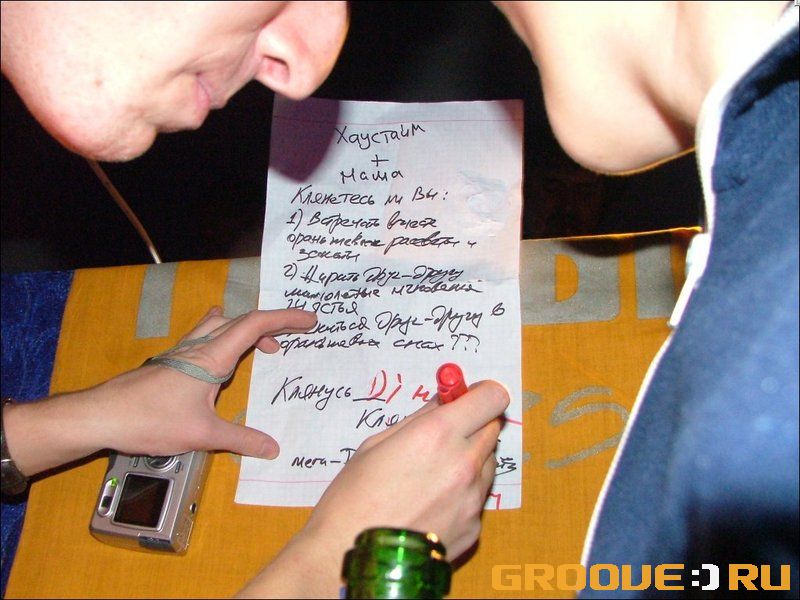 Хаустайм
+
Маша
Клянетесь ли Вы:
1) Встречать вместе
оранжевые рассветы и
закаты
2) Дарить друг-другу
мимолетные мгновения
друг-другу в
оранжевых снах???
Клянусь Di
мега-
GROOVE:)RU